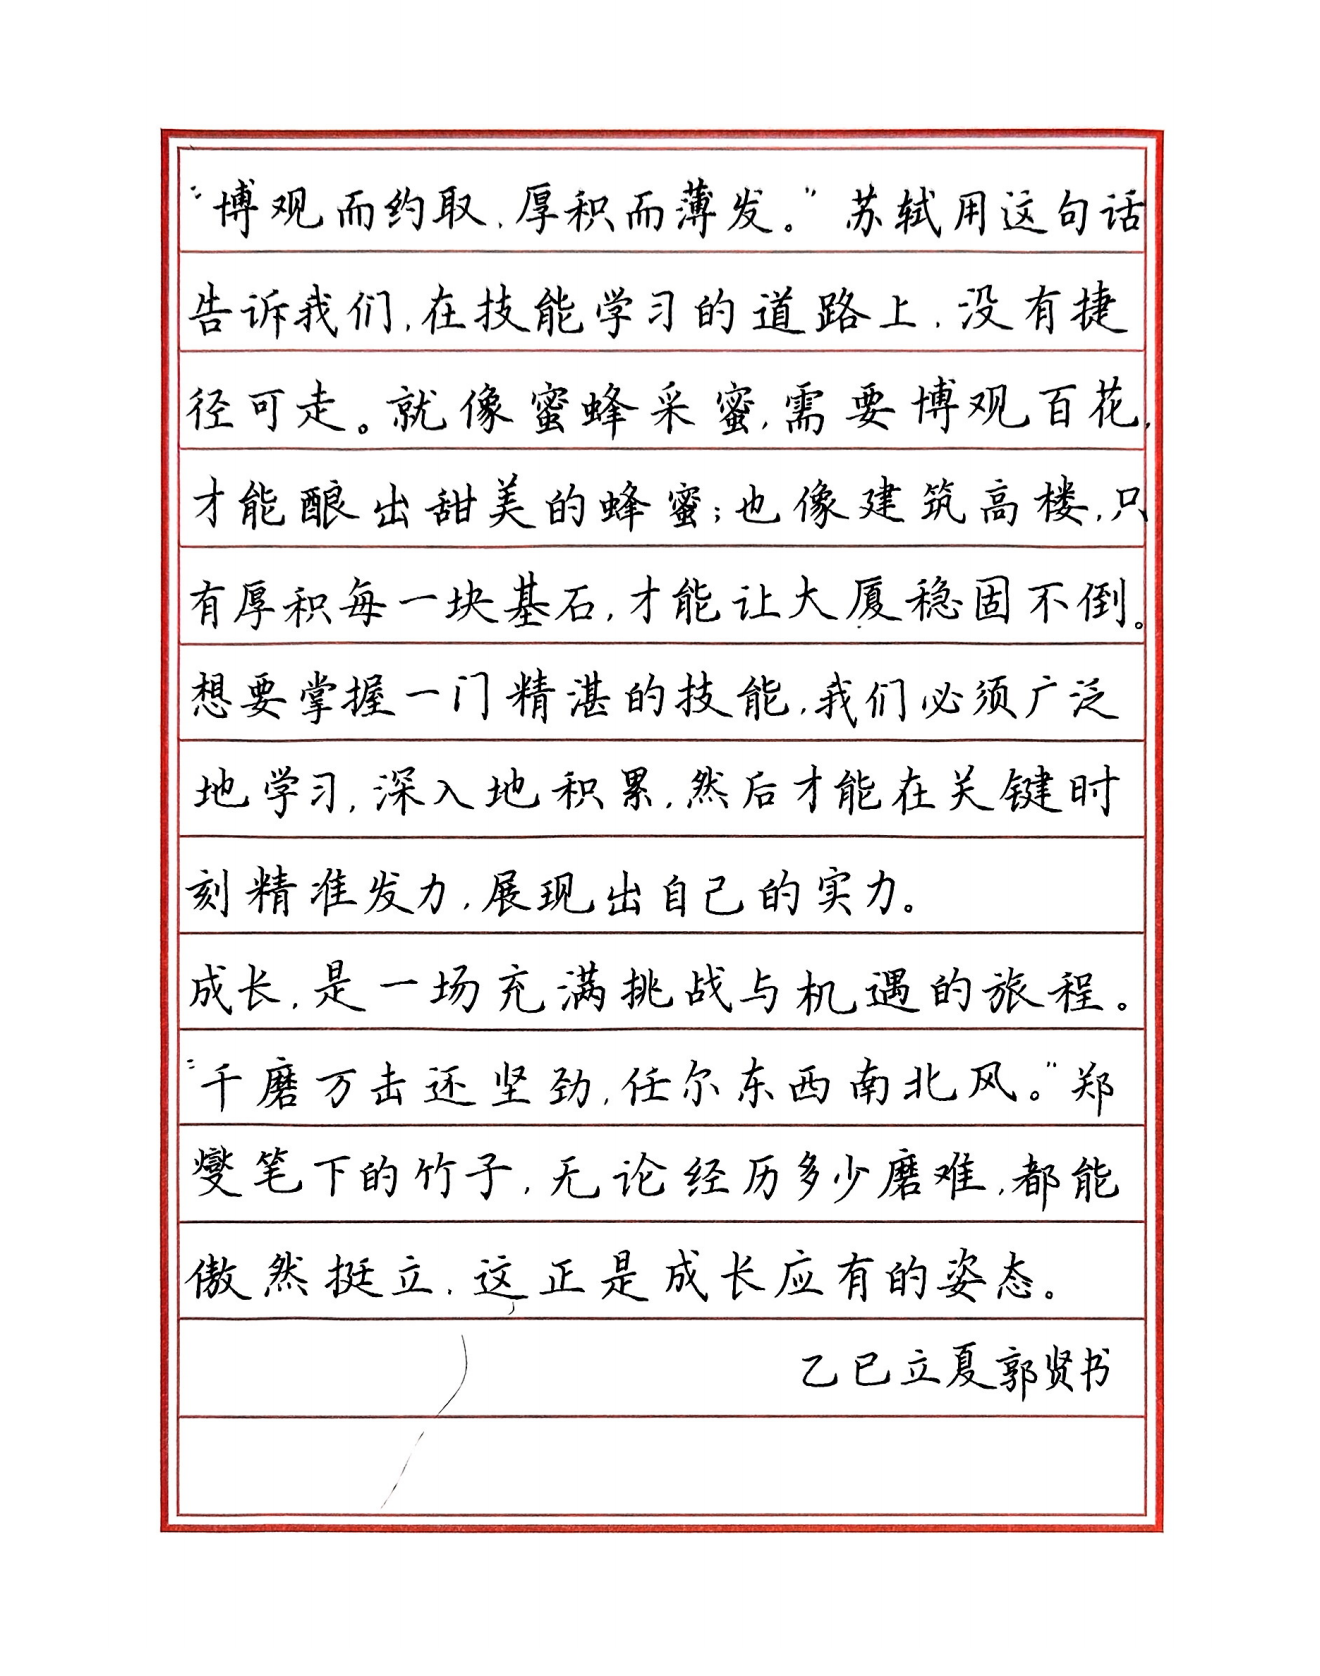 “博观而约取，厚积而薄发。”苏轼用这句话
告诉我们，在技能学习的道路上，没有捷
径可走。就像蜜蜂采蜜，需要博观百花，
才能酿出甜美的蜂蜜；也像建筑高楼，只
有厚积每一块基石，才能让大厦稳固不倒。
想要掌握一门精湛的技能，我们必须广泛
地学习，深入地积累，然后才能在关键时
刻精准发力，展现出自己的实力。
成长，是一场充满挑战与机遇的旅程。
“千磨万击还坚劲，任尔东西南北风。”郑
燮笔下的竹子，无论经历多少磨难，都能
傲然挺立，这正是成长应有的姿态。
乙巳立夏郭贤书